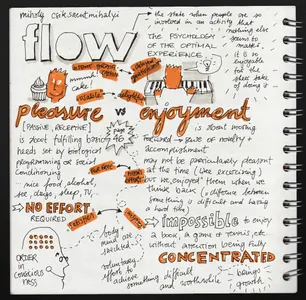 mihaly csikszentmihalyi
the state when people are so
involved in an activity that
nothing else
seems to
matter.
it is so
enjoyable
for the
sheer sake
of doing it
flow
THE PSYCHOLOGY
OF THE OPTIMAL
EXPERIENCE
mmmm!
cake
pleasure vs enjoyment
[PASSIVE, RECEPTIVE]
is about fulfilling basic
needs set by biological
programming or social
conditioning
nice food, alcohol,
tv, drugs, sleep,
page
46
is about moving
forward - sense of novelty +
accomplishment
may not be particularly pleasant
at the time (like exercising)
but we enjoyed them when we
think back
(difference between
something is difficult and having
a hard time)
NO EFFORT
REQUIRED
IMPOSSIBLE to enjoy
a book, a game of tennis, etc.
without attention being fully
CONCENTRATED
ORDER
IN
CONSCIOUS
NESS
body/
mind are
stretched
voluntary
effort to
achieve something difficult
and worthwhile
brings
growth